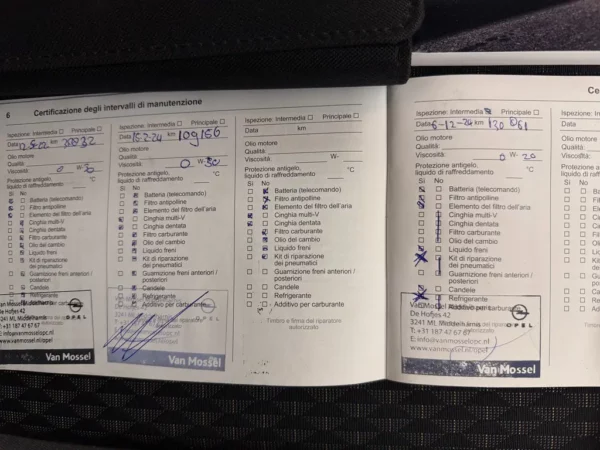 6 Certificazione degli intervalli di manutenzione
Ispezione: Intermedia Principale
Data km
Olio motore
Qualità:
Viscosità: 0 W- 30
Protezione antigelo,
liquido di raffreddamento °C
Sì No
Batteria (telecomando)
Filtro antipolline
Elemento del filtro dell'aria
Cinghia multi-V
Cinghia dentata
Filtro carburante
Olio del cambio
Liquido freni
Kit di riparazione
dei pneumatici
Guarnizione freni anteriori /
posteriori
Candele
Refrigerante
De Hofjes 42
3241 ML Middelharnis
T: +31 187 47 67 67
www.vanmossel.nl/opel
Van Mossel
Ispezione: Intermedia Principale
Data 15-2-24 km 109156
Olio motore
Qualità:
Viscosità: 0 W- 30
Protezione antigelo,
liquido di raffreddamento °C
Sì No
Batteria (telecomando)
Filtro antipolline
Elemento del filtro dell'aria
Cinghia multi-V
Cinghia dentata
Filtro carburante
Olio del cambio
Liquido freni
Kit di riparazione
dei pneumatici
Guarnizione freni anteriori /
posteriori
Candele
Refrigerante
Additivo per carburante
OPEL
Van Mossel
Ispezione: Intermedia Principale
Data km
Olio motore
Qualità:
Viscosità: W-
Protezione antigelo,
liquido di raffreddamento °C
Sì No
Batteria (telecomando)
Filtro antipolline
Elemento del filtro dell'aria
Cinghia multi-V
Cinghia dentata
Filtro carburante
Olio del cambio
Liquido freni
Kit di riparazione
dei pneumatici
Guarnizione freni anteriori /
posteriori
Candele
Refrigerante
Additivo per carburante
Timbro e firma del riparatore
autorizzato
Ce
Ispezione: Intermedia Principale
Data 6-12-24 km 130 061
Olio motore
Qualità:
Viscosità: 0 W- 20
Protezione antigelo,
liquido di raffreddamento °C
Sì No
Batteria (telecomando)
Filtro antipolline
Elemento del filtro dell'aria
Cinghia multi-V
Cinghia dentata
Filtro carburante
Olio del cambio
Liquido freni
Kit di riparazione
dei pneumatici
Guarnizione freni anteriori /
posteriori
Candele
Refrigerante
Additivo per carburante
De Hofjes 42
3241 ML Middelharnis
OPEL
T: +31 187 47 67 67
www.vanmossel.nl/opel
Van Mossel
Ispezione:
Data
Olio motore
Qualità:
Viscosità:
Protezione
liquido di
Sì No